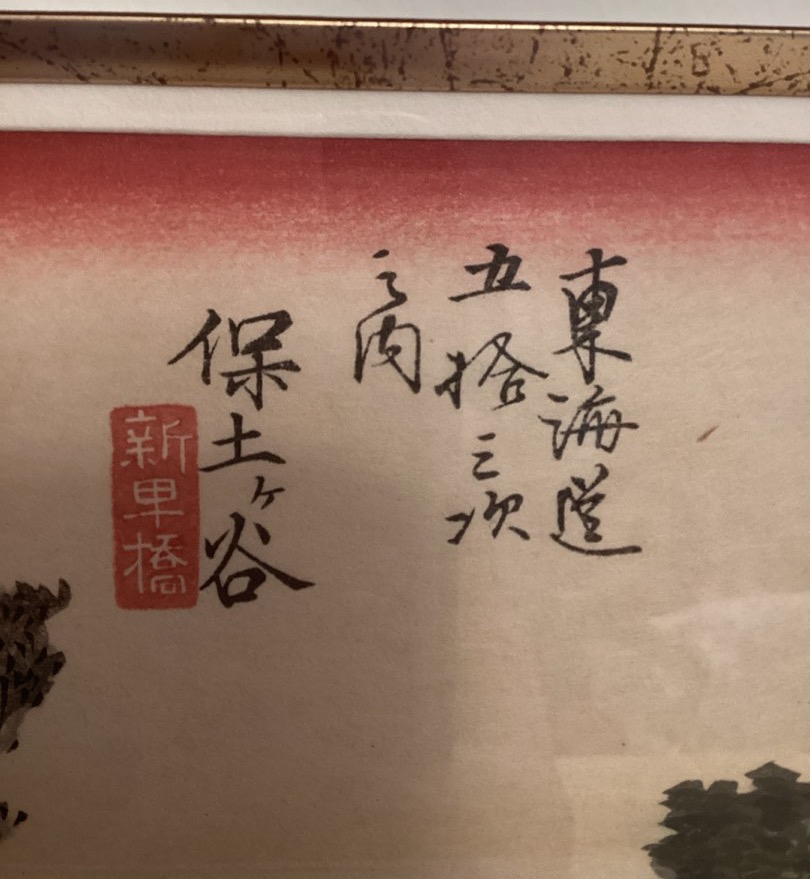 東海道
五拾三次
之内
保土ヶ谷
新町橋